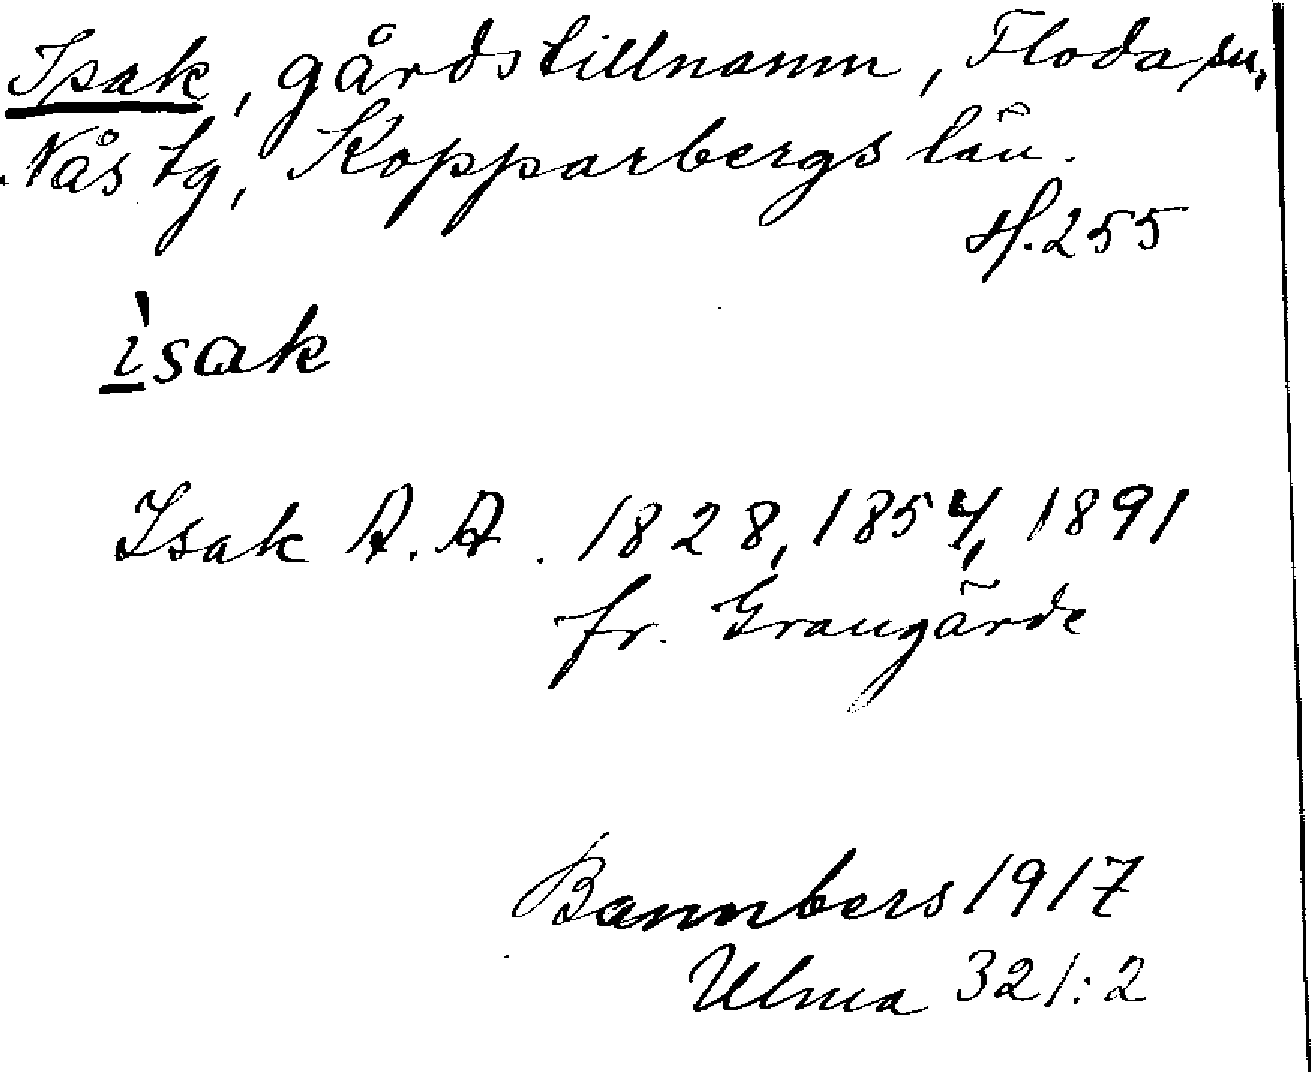 Isak, gårdstillnamn, Floda sn,
Nås tg, Kopparbergs län.
H.255
ìsak
Isak A. A. 1828, 1854, 1891
fr. Grangärde
Bannbers 1917
Ulma 321:2